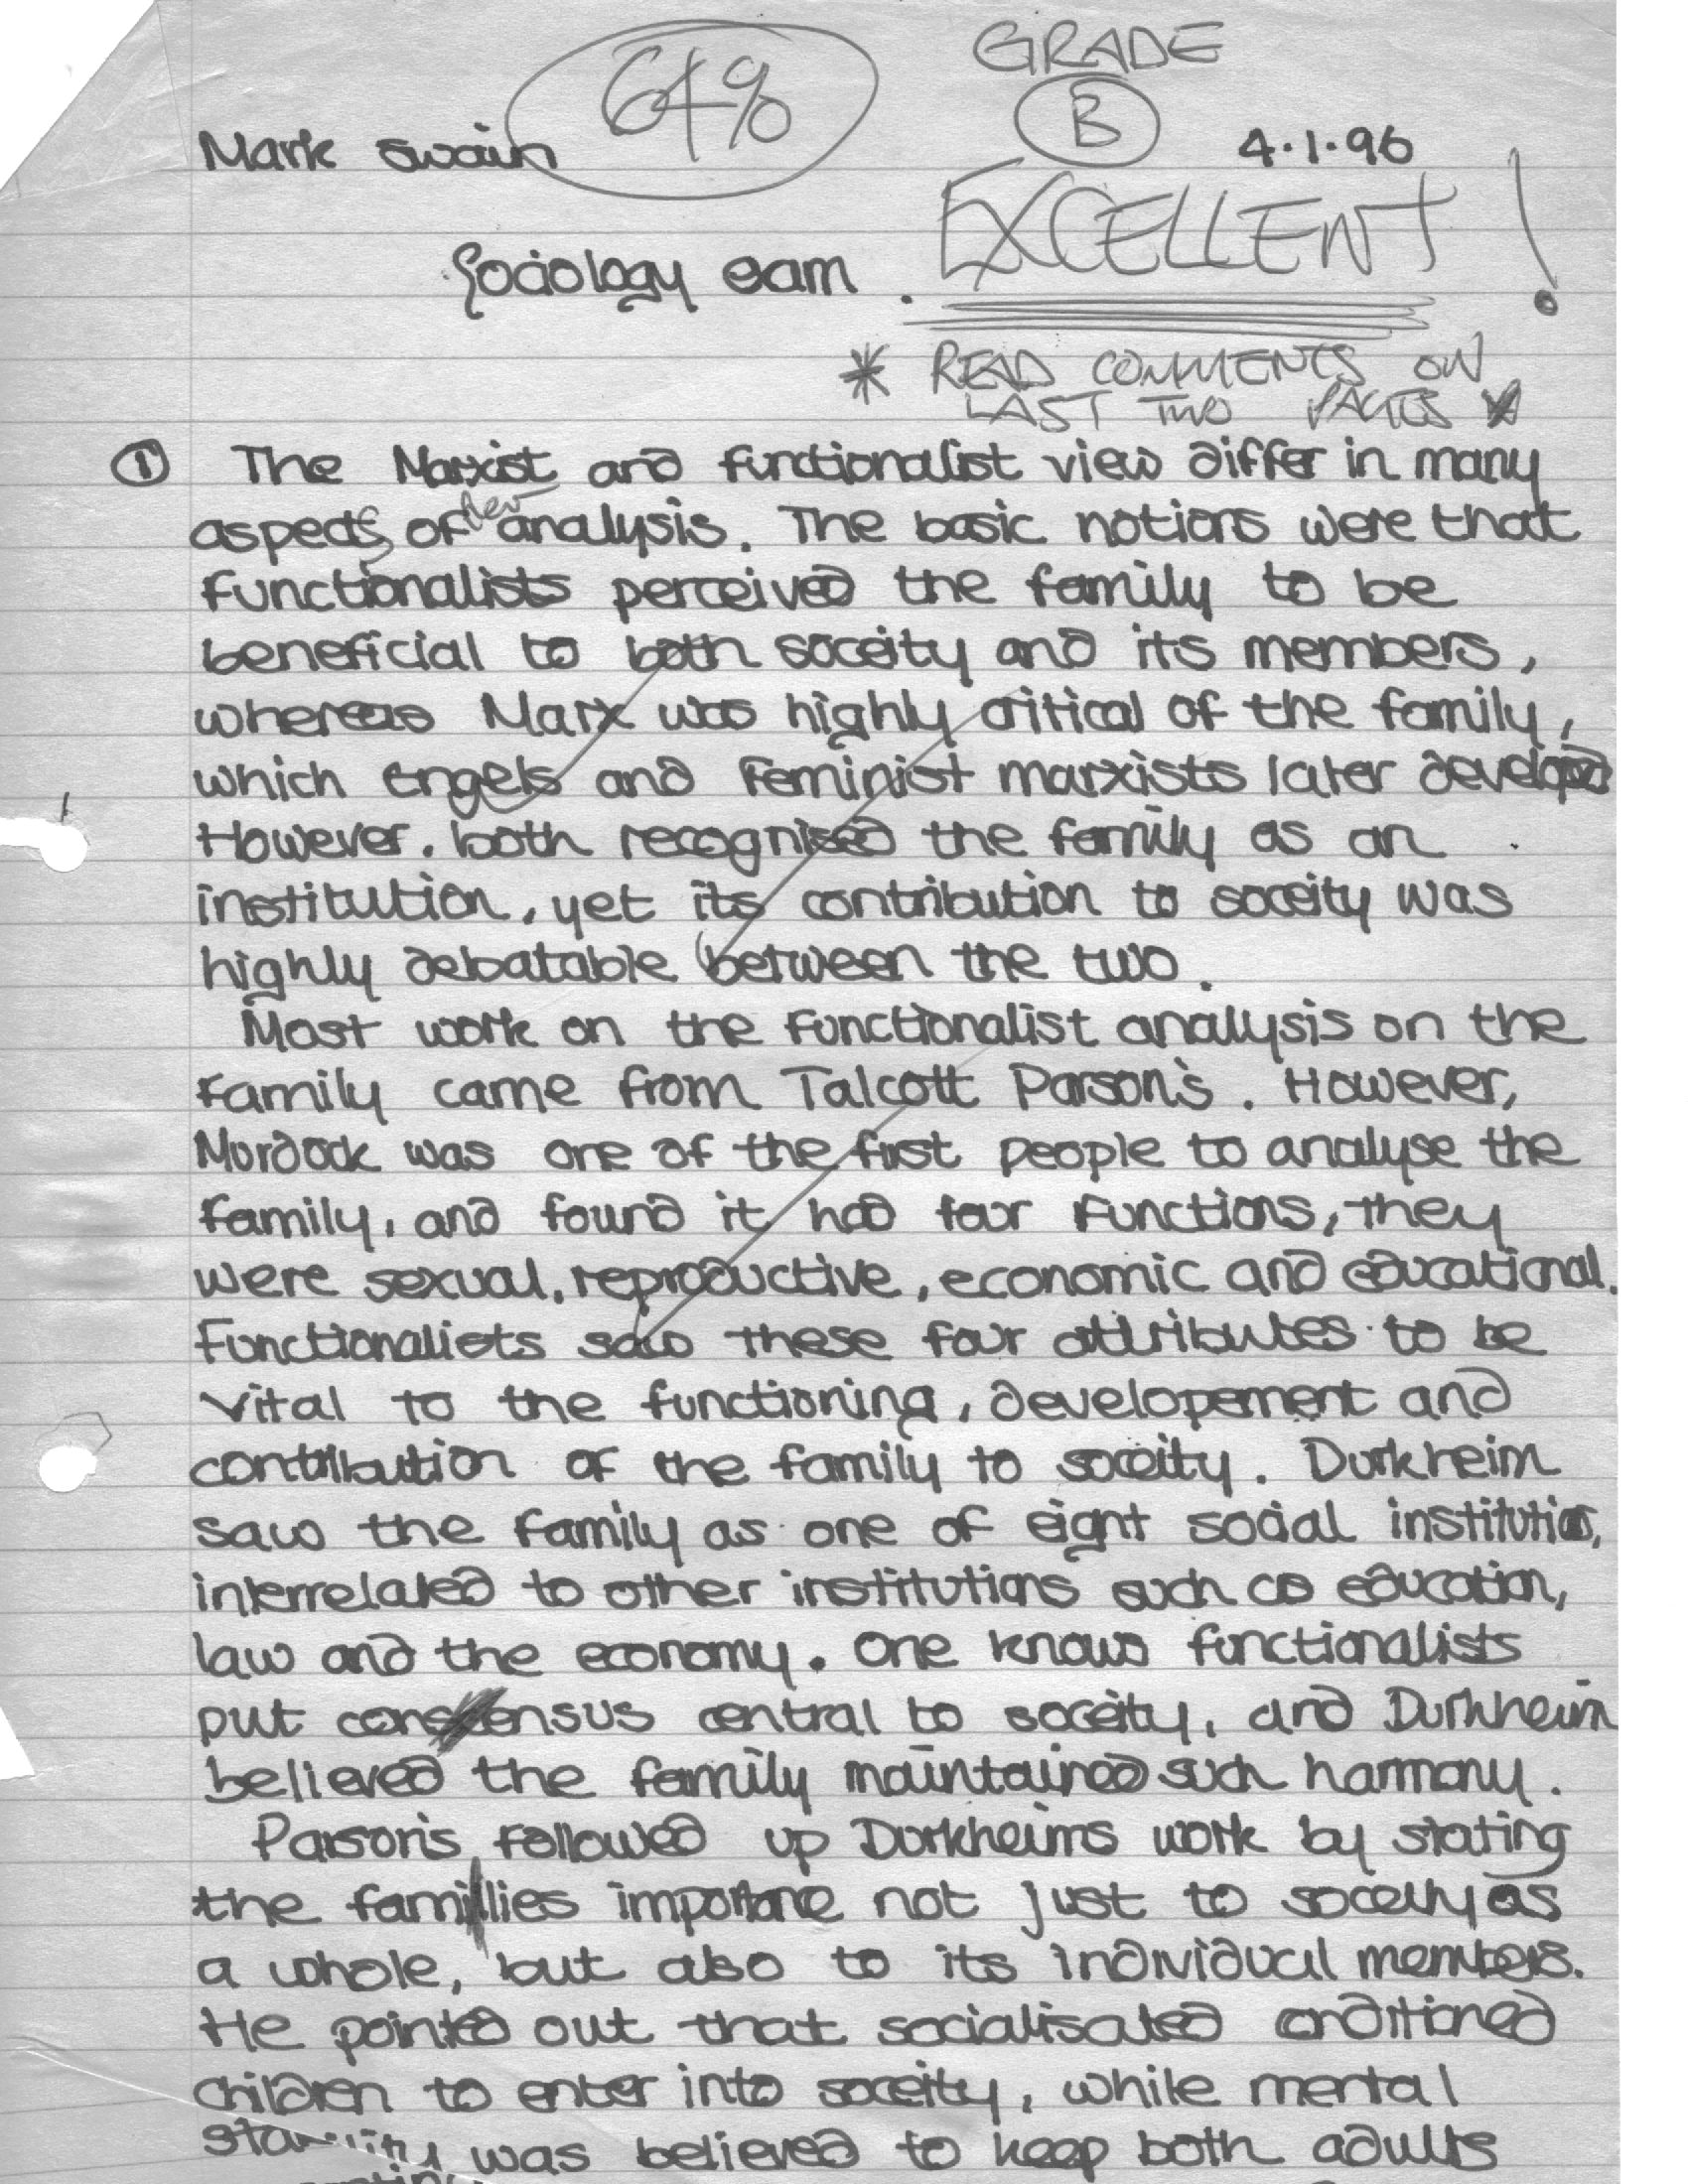 64%
GRADE
B
Mark Swain
4.1.96
EXCELLENT!
Sociology eam.
* READ COMMENTS ON
LAST TWO PAGES *
① The Marxist and functionalist view differ in many
aspects of their analysis. The basic notions were that
Functionalists perceived the family to be
beneficial to both soceity and its members,
whereas Marx was highly critical of the family,
which Engels and Feminist marxists later developed
However, both recognised the family as an
institution, yet its contribution to soceity was
highly debatable between the two.
Most work on the Functionalist analysis on the
Family came from Talcott Parson's. However,
Murdock was one of the first people to analyse the
family, and found it had four Functions, they
were sexual, reproductive, economic and educational.
Functionalists saw these four attributes to be
vital to the functioning, developement and
contribution of the family to soceity. Durkheim
saw the family as one of eight social institutions,
interrelated to other institutions such as education,
law and the economy. One knows functionalists
put consensus central to soceity, and Durkheim
believed the family maintained such harmony.
Parson's followed up Durkheims work by stating
the families importance not just to soceity as
a whole, but also to its individual members.
He pointed out that socialisated conditioned
children to enter into soceity, while mental
stability was believed to keep both adults